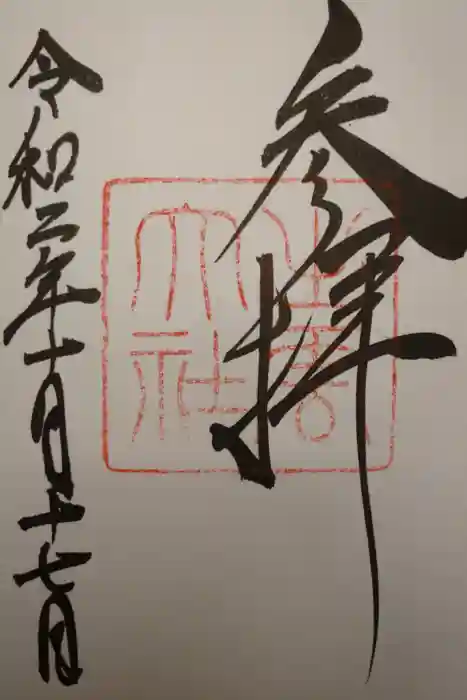 参拝
出雲
大社
令和二年十月十七日